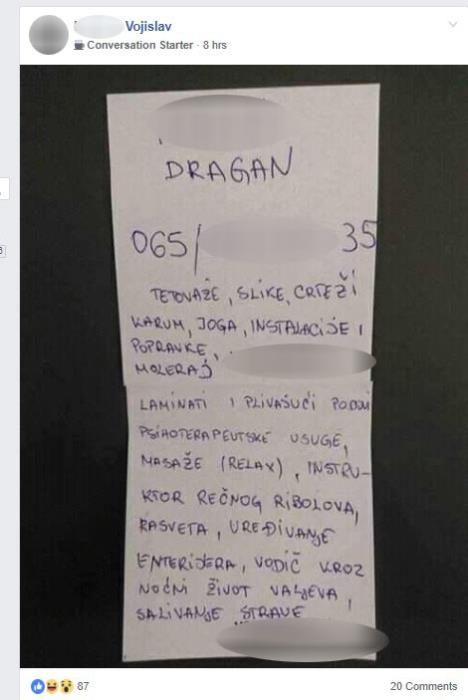 Vojislav
Conversation Starter · 8 hrs
DRAGAN
065/ 35
TETOVAŽE, SLIKE, CRTEŽI
KARUM, JOGA, INSTALACIJE I
POPRAVKE,
MOLERAJ
LAMINATI I PLIVAJUĆI PODOVI
PSIHOTERAPEUTSKE USUGE,
MASAŽE (RELAX), INSTRU-
KTOR REČNOG RIBOLOVA,
RASVETA, UREĐIVANJE
ENTERIJERA, VODIČ KROZ
NOĆNI ŽIVOT VALJEVA,
SALIVANJE STRAVE
87
20 Comments